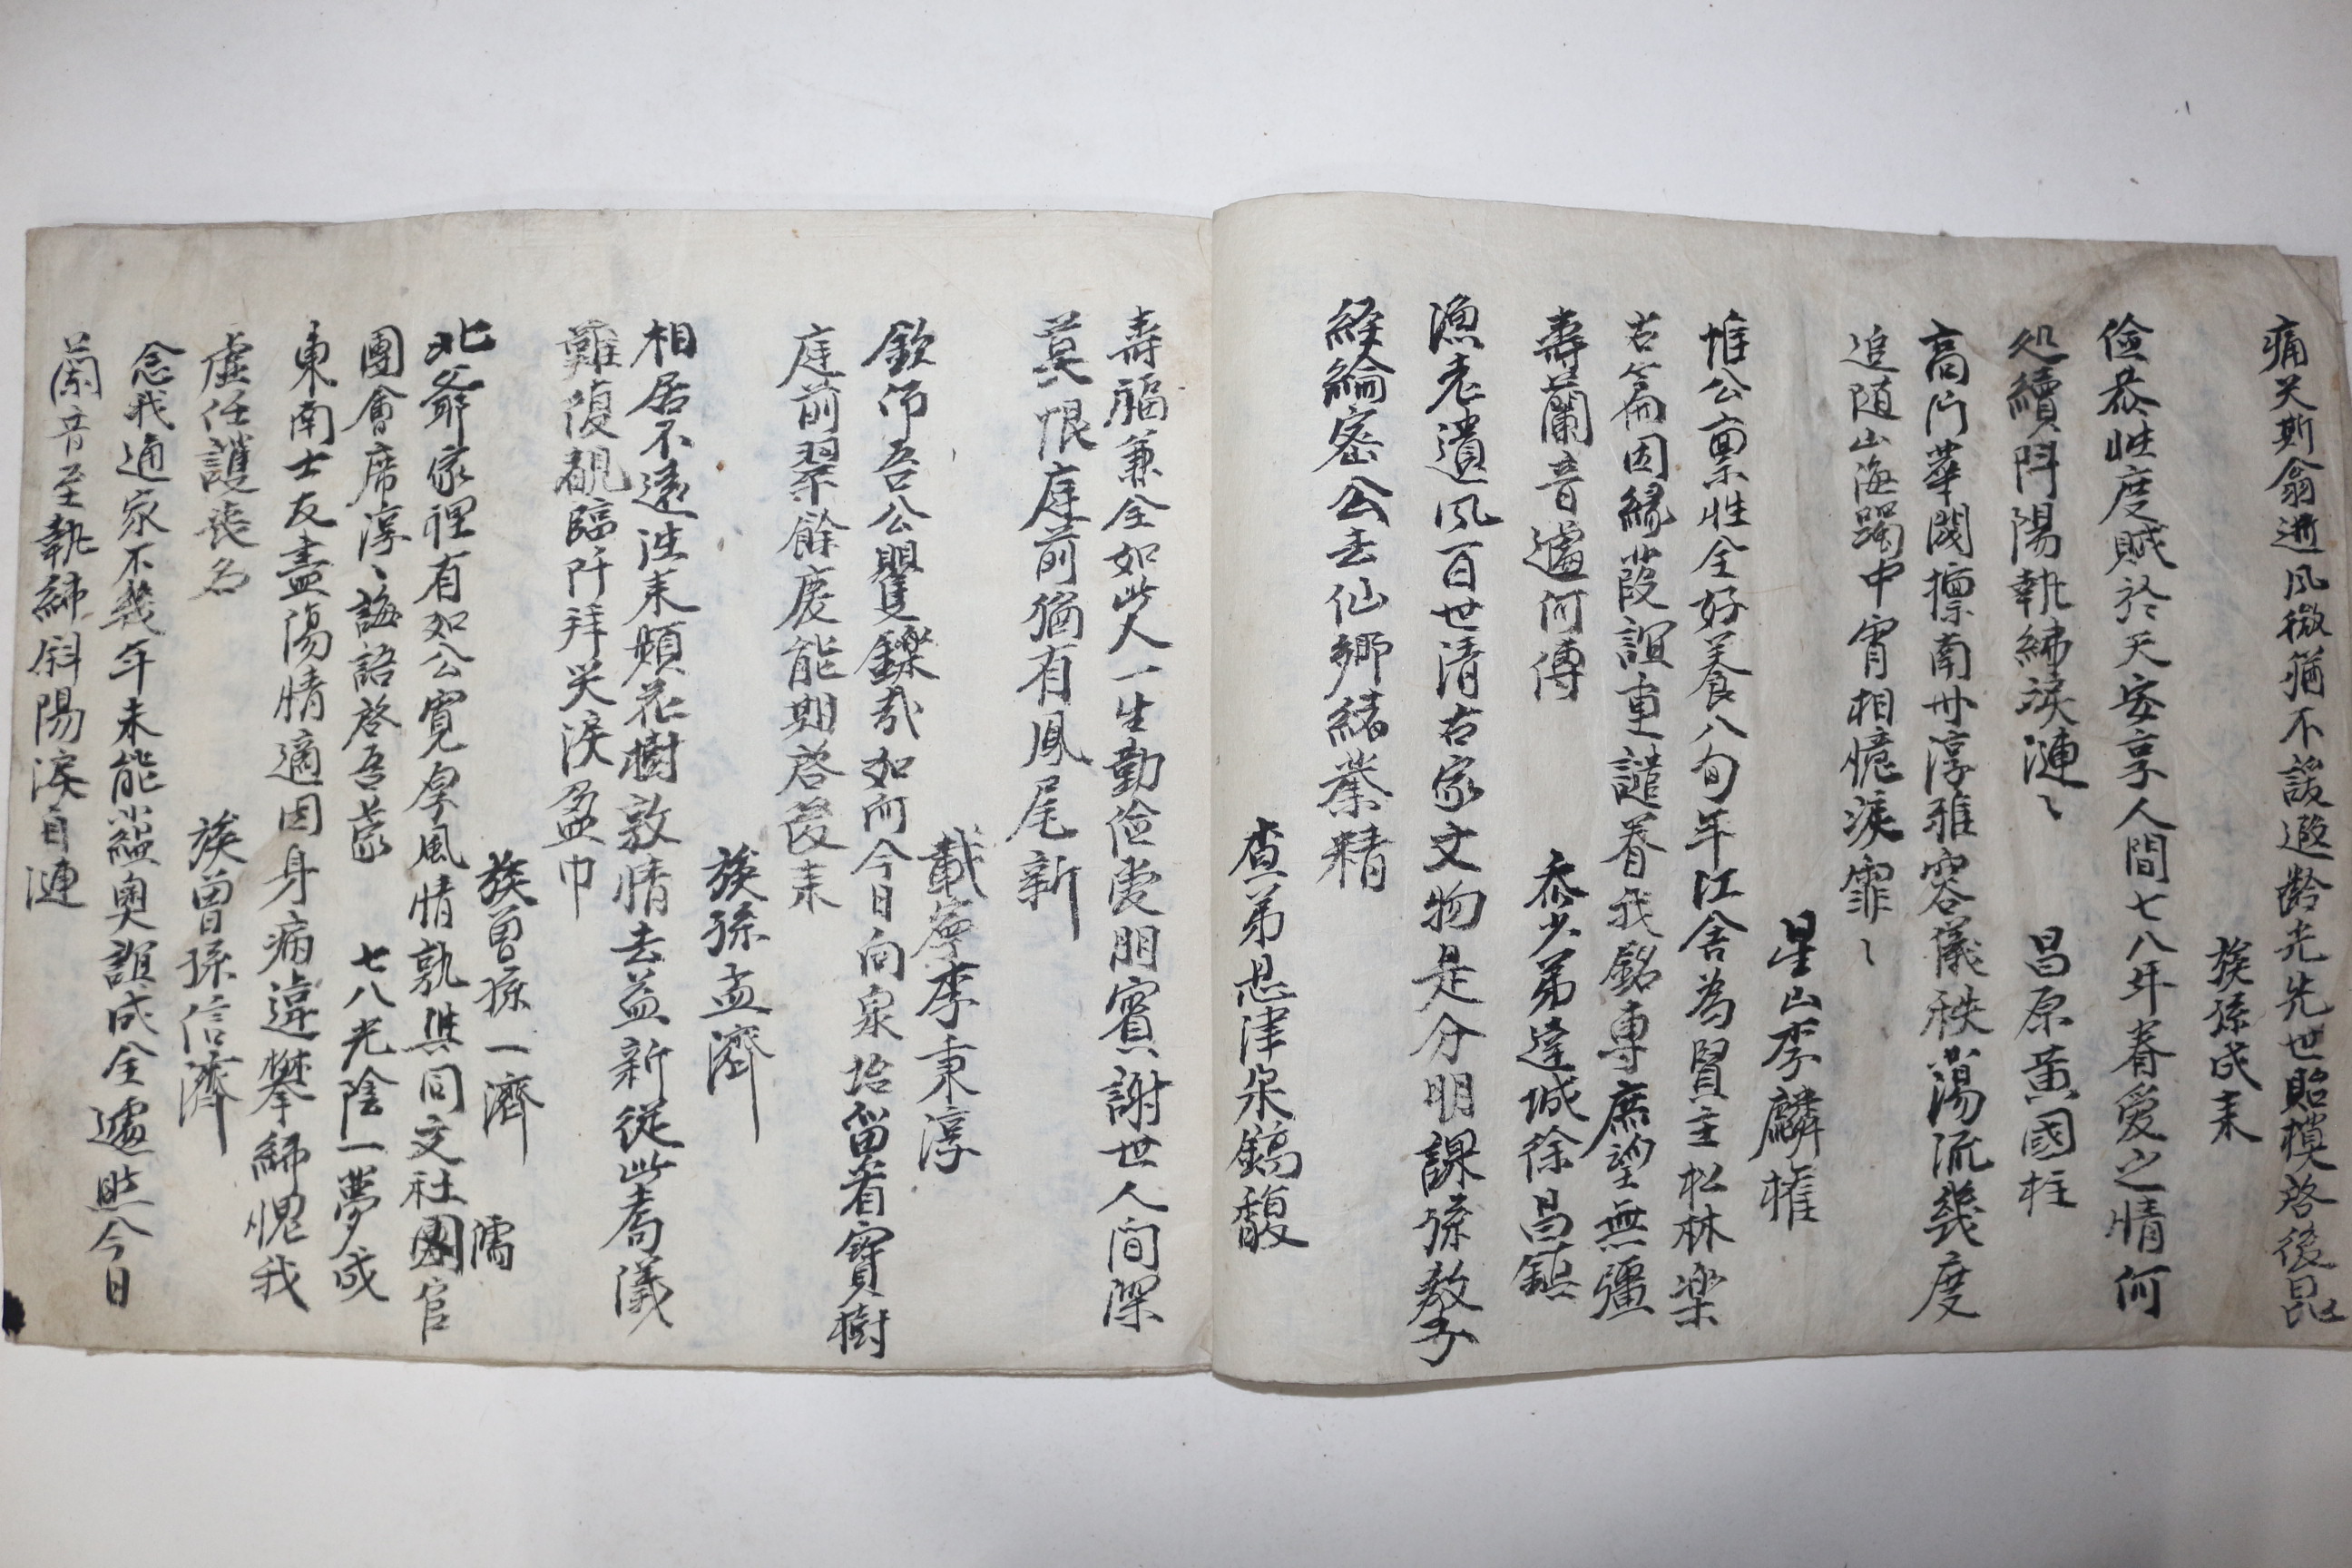 痛哭斯翁逝風微猶不諼遐齡光先世貽模啓後昆
族孫成末
儉恭性度賦於天安享人間七八年眷愛之情何
処續阡陽執紼淚漣〻
昌原黃國柱
高門華閥標南州淳雅容儀秩蕩流幾度
追随山海蠲中宵相憶淚霏〻
星山李麟權
惟公稟性全好養八旬年江舍為賢主松林楽
右篇因緣葭誼重譴眷我銘專庶望無彊
壽蘭音遽何傳
忝少弟達城徐昌鎮
漁老遺風百世清古家文物是分明課孫教子
経綸密公去仙鄉緒業精
査弟思津宋鎬馥
壽福兼全如此人一生勤儉愛朋賓謝世人间深
莫恨庭前猶有鳳尾新
載寧李秉淳
欽仰吾公矍鑠哉如何今日向泉坮留着寶樹
庭前翠餘慶能期啓後来
族孫孟濟
相居不遠迬来頻花樹敦情去益新従此耉儀
難復覩臨阡拜哭淚盈巾
族曽孫一濟
北爺家裡有如公寛厚風情孰與同文社儒官
團會席淳〻誨語啓吾蒙
七八光陰一夢成
東南士友盡傷情適因身病違攀紼愧我
虛任護喪名
族曽孫信濟
念我通家不幾年未能蘊奧誼成全遽然今日
蘭音至執紼斜陽淚自漣